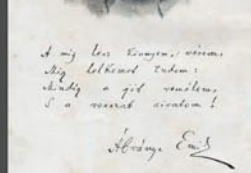 A míg lesz könnyem, vérem,
Míg lelkemet tudom:
Mindig a jót remélem,
S a rosszat siratom!
Ábrányi Emil